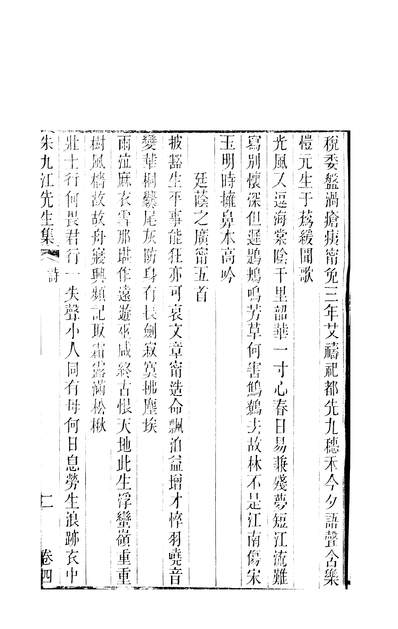 稅委盤渦瘡痍甯免三年艾禱祀都先九穗禾今夕語聲合樂
榿元生于襏緩聞歌
光風又逗海棠陰千里韶華一寸心春日易兼殘夢短江流雖
寫別懷深但遲鶗鴂鳴芳草何害鷦鷯去故林不是江南傷宋
玉明時擁鼻本高吟
廷蔭之廣甯五首
披豁生平事能狂亦可哀文章甯造命飄泊益增才悴羽嘵音
變華桐爨尾灰防身有長劍寂寞拂塵埃
雨泣麻衣雪那堪作遠遊巫咸終古恨天地此生浮蠻嶺重重
樹風檣故故舟巖興頻記取霜露滿松楸
壯士行何畏君行一失聲小人同有母何日息勞生浪跡衣中
朱九江先生集
詩
卷四